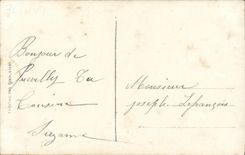 Bonjour de
Preuilly Ta
Cousine
Suzanne
Monsieur
joseph Lefrançois